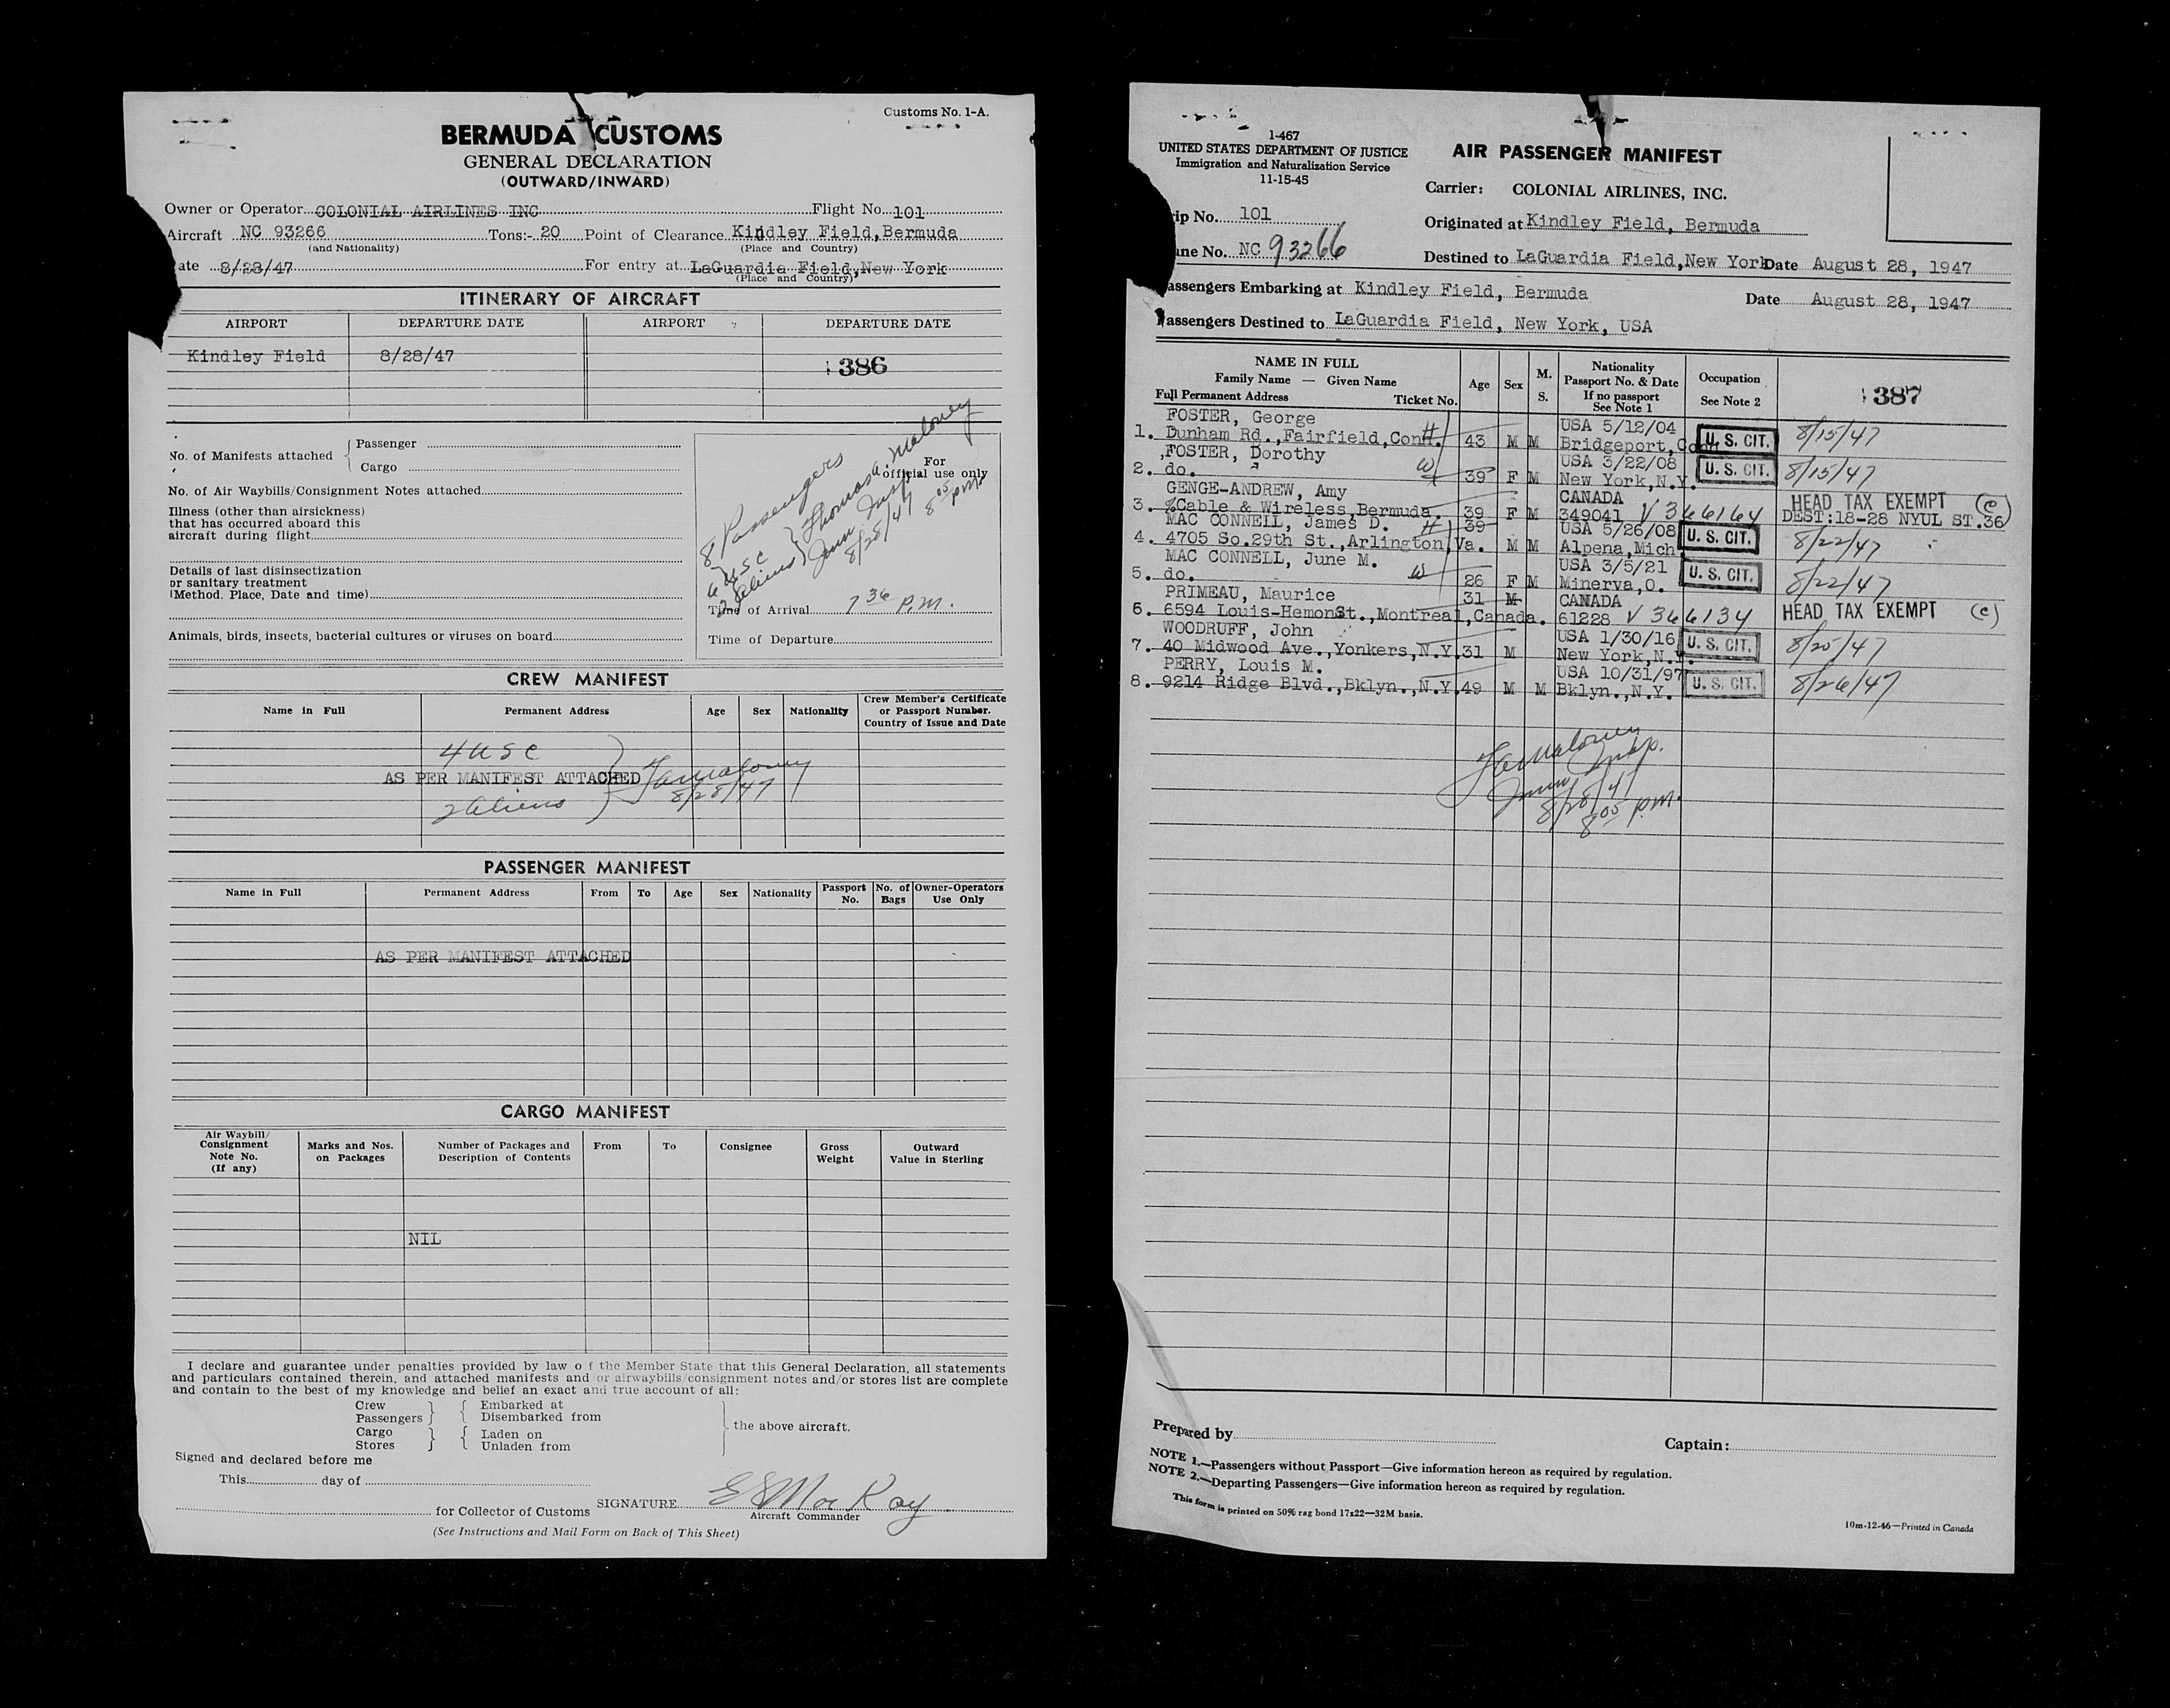 Customs No. 1-A.
BERMUDA CUSTOMS
GENERAL DECLARATION
(OUTWARD/INWARD)
Owner or Operator COLONIAL AIRLINES INC Flight No. 101
Aircraft NC 93266 Tons:- 20 Point of Clearance Kindley Field, Bermuda
(and Nationality) (Place and Country)
ate 8/28/47 For entry at LaGuardia Field, New York
(Place and Country)
ITINERARY OF AIRCRAFT
AIRPORT DEPARTURE DATE AIRPORT DEPARTURE DATE
Kindley Field 8/28/47
386
No. of Manifests attached { Passenger
Cargo
For official use only
8 Passengers
6 USC
2 Aliens
Thomas A. Maloney
Imm. Insp.
8/28/47 8 05 pm
No. of Air Waybills/Consignment Notes attached
Illness (other than airsickness)
that has occurred aboard this
aircraft during flight
Details of last disinsectization
or sanitary treatment
(Method, Place, Date and time)
Time of Arrival 7 36 P.M.
Animals, birds, insects, bacterial cultures or viruses on board
Time of Departure
CREW MANIFEST
Name in Full Permanent Address Age Sex Nationality Crew Member's Certificate or Passport Number. Country of Issue and Date
4 USC
AS PER MANIFEST ATTACHED
2 Aliens
TA Maloney
8/28/47
PASSENGER MANIFEST
Name in Full Permanent Address From To Age Sex Nationality Passport No. No. of Bags Owner-Operators Use Only
AS PER MANIFEST ATTACHED
CARGO MANIFEST
Air Waybill/ Consignment Note No. (If any) Marks and Nos. on Packages Number of Packages and Description of Contents From To Consignee Gross Weight Outward Value in Sterling
NIL
I declare and guarantee under penalties provided by law o f the Member State that this General Declaration, all statements
and particulars contained therein, and attached manifests and or airwaybills/consignment notes and/or stores list are complete
and contain to the best of my knowledge and belief an exact and true account of all:
Crew Embarked at
Passengers Disembarked from
the above aircraft.
Cargo Laden on
Stores Unladen from
Signed and declared before me
This day of
for Collector of Customs SIGNATURE E S Mac Kay
Aircraft Commander
(See Instructions and Mail Form on Back of This Sheet)
1-467
UNITED STATES DEPARTMENT OF JUSTICE
Immigration and Naturalization Service
11-15-45
AIR PASSENGER MANIFEST
Carrier: COLONIAL AIRLINES, INC.
ip No. 101 Originated at Kindley Field, Bermuda
ane No. NC 93266 Destined to LaGuardia Field, New York Date August 28, 1947
assengers Embarking at Kindley Field, Bermuda Date August 28, 1947
assengers Destined to LaGuardia Field, New York, USA
NAME IN FULL
Family Name — Given Name
Full Permanent Address Ticket No.
Age Sex M. S.
Nationality
Passport No. & Date
If no passport
See Note 1
Occupation
See Note 2
387
FOSTER, George USA 5/12/04
1. Dunham Rd.,Fairfield,Conn. H 43 M M Bridgeport,Conn U. S. CIT. 8/15/47
FOSTER, Dorothy USA 3/22/08
2. do. W 39 F M New York,N.Y. U. S. CIT. 8/15/47
GENGE-ANDREW, Amy CANADA HEAD TAX EXEMPT (C)
3. %Cable & Wireless,Bermuda. 39 F M 349041 V 366164 DEST:18-28 NYUL ST.36
MAC CONNELL, James D. H 39 USA 5/26/08
4. 4705 So.29th St.,Arlington,Va. M M Alpena,Mich. U. S. CIT. 8/22/47
MAC CONNELL, June M. USA 3/5/21
5. do. W 26 F M Minerva,O. U. S. CIT. 8/22/47
PRIMEAU, Maurice 31 M CANADA
6. 6594 Louis-HemonSt.,Montreal,Canada. 61228 V 366134 HEAD TAX EXEMPT (C)
WOODRUFF, John USA 1/30/16
7. 40 Midwood Ave.,Yonkers,N.Y. 31 M New York,N.Y. U. S. CIT. 8/25/47
PERRY, Louis M. USA 10/31/97
8. 9214 Ridge Blvd.,Bklyn.,N.Y. 49 M M Bklyn.,N.Y. U. S. CIT. 8/26/47
TA Maloney
Imm. Insp.
8/28/47
8 05 P.M.
Prepared by Captain:
NOTE 1.—Passengers without Passport—Give information hereon as required by regulation.
NOTE 2.—Departing Passengers—Give information hereon as required by regulation.
This form is printed on 50% rag bond 17x22—32M basis.
10m-12-46—Printed in Canada